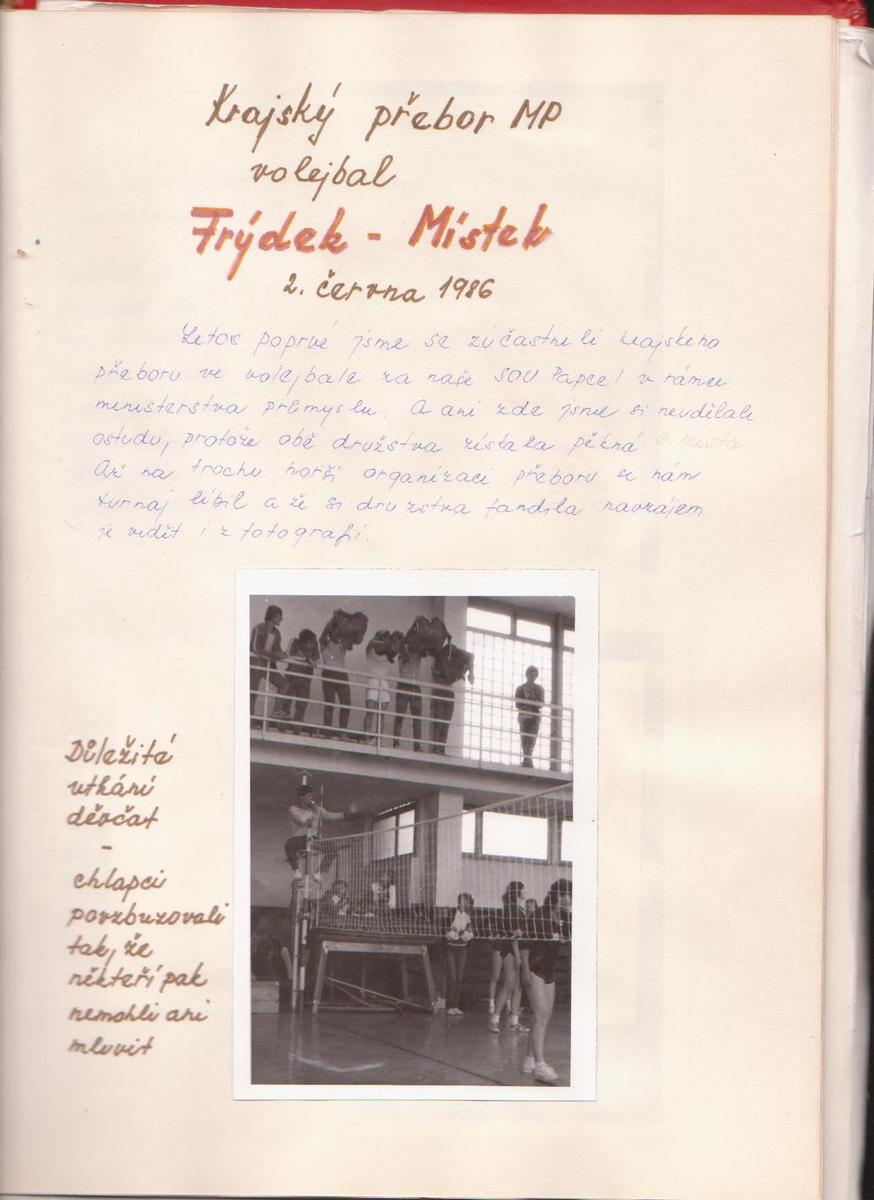 Krajský přebor MP
volejbal
Frýdek - Místek
2. června 1986
Letos poprvé jsme se zúčastnili krajského
přeboru ve volejbale za naše SOU Papcel v rámci
ministerstva průmyslu. A ani zde jsme si neudělali
ostudu, protože obě družstva získala pěkná 3. místa
Až na trochu horší organizaci přeboru se nám
turnaj líbil a že si družstva fandila navzájem
je vidět i z fotografií.
Důležité
utkání
děvčat
-
chlapci
povzbuzovali
tak, že
někteří pak
nemohli ani
mluvit